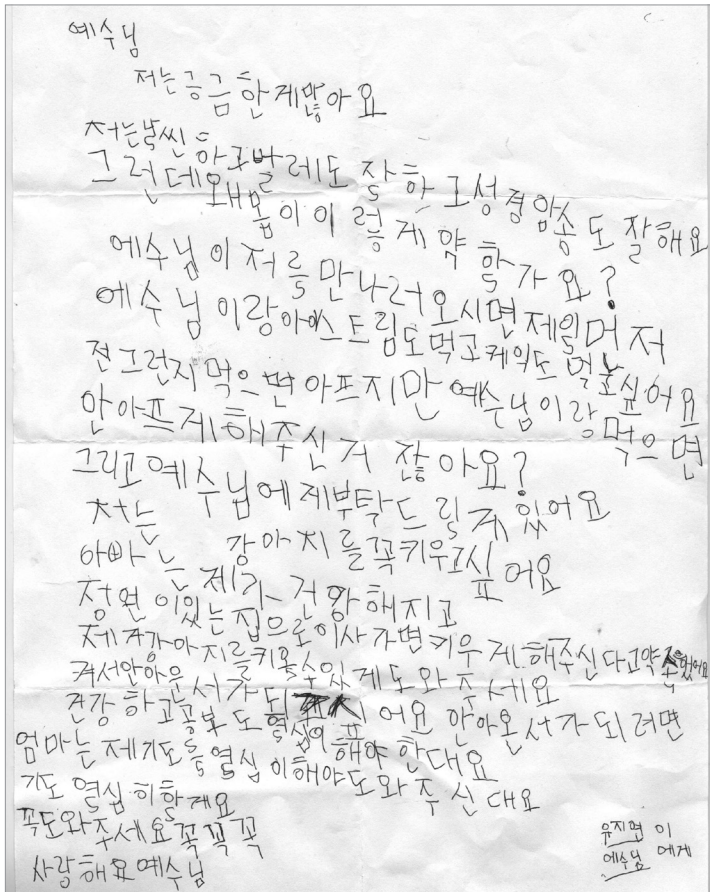 예수님
저는 긍금한게많아요
저는날씬하고발레도 잘하고성경암송도 잘해요
그런데왜몸이이럴게 약할가요?
예수님이저를만나러오시면제일머저
예수님이랑아이스트림도먹고케익도먹고싶어요
전그런지먹으면아프지만 예수님이랑먹으면
안아프게해주신거 잖아요?
그리고예수님에게부탁드릴게있어요
저는 강아지를꼭키우고싶어요
아빠는제가건강해지고
정원이있는집으로이사가면키우게해주신다고약속했어요
제가강아지를키울수있게도와주세요
커서안아운서가되고시퍼어요 안아운서가되려면
건강하고공부도열심히해야한대요
엄마는제기도를열심이해야도와주신대요
기도열심히할게요
꼭도와주세요꼭꼭꼭
사랑해요예수님
유지현이
예수님에게